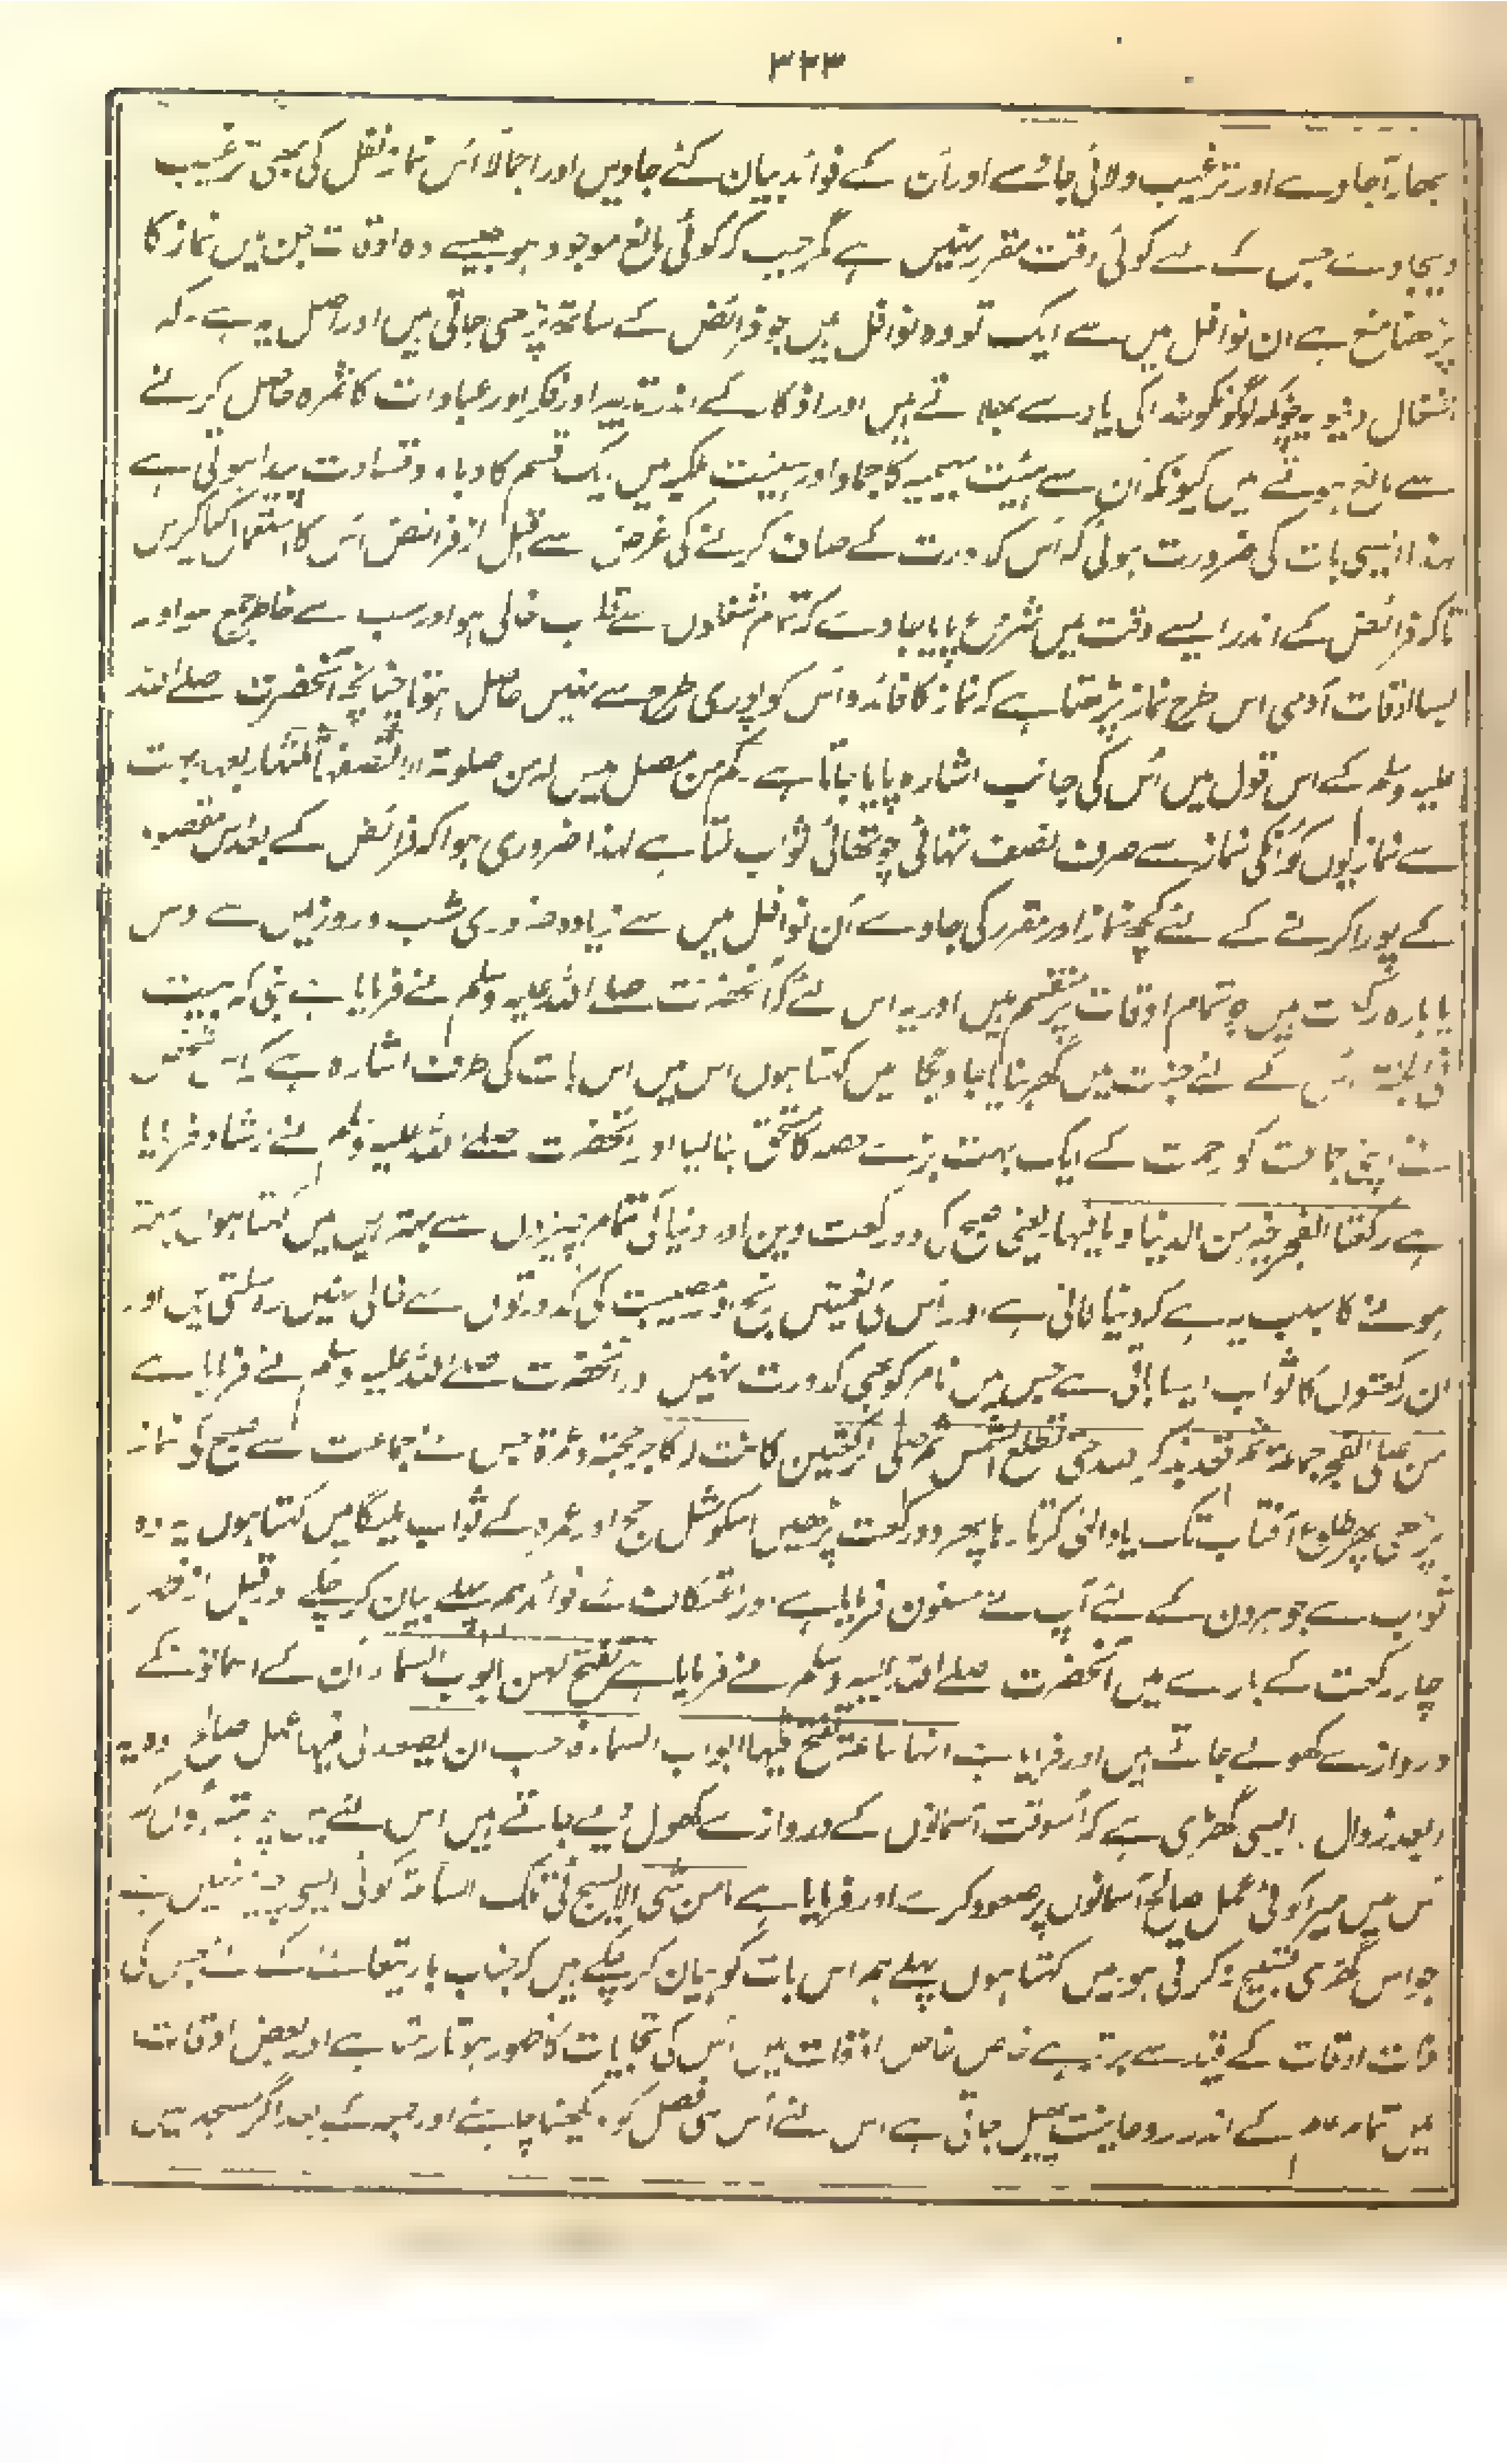 ۳۲۳
بھارا جاوے اور ترغیب دلائی جائے اور اُن کے فوائد بیان کئے جاویں اور اجمالاً اس نماز نفل کی بھی ترغیب
دیجاوے جس کے لے کوئی وقت مقرر نہیں ہے مگر جب کہ کوئی مانع موجود ہو جیسے وہ اوقات جن میں نماز کا
پڑھنا منع ہے ان نوافل میں سے ایک تو وہ نوافل ہیں جو فرائض کے ساتھ پڑھی جاتی ہیں اور اصل یہ ہے۔ کہ
اشغال دنیویہ چونکہ لوگونکو خدا کی یاد سے بھلاتے ہیں اور اذکار کے اندر تدبیر اور فکر اور عبادات کا ثمرہ حاصل کرنے
سے مانع ہوتے ہیں کیونکہ ان سے ہیئت بہیمیہ کا جماؤ اور ہیئت ملکیہ میں ایک قسم کا دباؤ و قساوت پیدا ہوتی ہے
لہذا ایسی بات کی ضرورت ہوئی کہ اُس کدورت کے صاف کرنے کی غرض سے قبل از فرائض اس کا استعمال کیا کریں
تاکہ فرائض کے اندر ایسے وقت میں شروع پایا جاوے کہ تمام شغلوں سے قلب خالی ہو اور سب سے خاطر جمع ہو اور
بسا اوقات آدمی اس طرح نماز پڑھتا ہے کہ نماز کا فائدہ اس کو پوری طرح سے نہیں حاصل ہوتا چنانچہ آنحضرت صلے اللہ
علیہ وسلم کے اس قول میں اس کی جانب اشارہ پایا جاتا ہے۔ کم من مصل لیس لہ من صلوتہ الا نصفہا ثلثہا ربعہا بہت
سے نمازیوں کو اُنکی نماز سے صرف نصف تہائی چوتھائی ثواب ملتا ہے لہذا ضروری ہوا کہ فرائض کے بعد اس مقصود
کے پورا کرنے کے لئے کچھ نماز اور مقرر کی جاوے اُن نوافل میں سے زیادہ ضروری شب و روز میں سے دس
یا بارہ رکعت ہیں جو تمام اوقات پر منقسم ہیں اور یہ اس لئے کہ آنحضرت صلے اللہ علیہ وسلم نے فرمایا ہے بنی لہ بیت
فی الجنۃ اُس کے لئے جنت میں گھر بنایا جاویگا میں کہتا ہوں اس میں اس بات کی طرف اشارہ ہے کہ اس شخص
نے اپنی جماعت کو رحمت کے ایک بہت بڑے حصہ کا مستحق بنا لیا اور آنحضرت صلے اللہ علیہ وسلم نے ارشاد فرمایا
ہے رکعتا الفجر خیر من الدنیا و ما فیہا۔ یعنی صبح کی دو رکعت دین اور دنیا کی تمام چیزوں سے بہتر ہیں میں کہتا ہوں بہتر
ہونے کا سبب یہ ہے کہ دنیا فانی ہے اور اس کی نعمتیں رنج اور مصیبت کی کدورتوں سے خالی نہیں رہ سکتی ہیں اور
ان رکعتوں کا ثواب ایسا باقی ہے جس میں نام کو بھی کدورت نہیں اور آنحضرت صلے اللہ علیہ وسلم نے فرمایا ہے
من صلی الفجر جماعۃ ثم قعد یذکر اللہ حتی تطلع الشمس ثم صلی رکعتین کانت لہ کاجر حجۃ و عمرۃ جس نے جماعت سے صبح کی نماز
پڑھی پھر طلوع آفتاب تک یاد الٰہی کرتا رہا پھر دو رکعت پڑھیں اسکو مثل حج اور عمرہ کے ثواب ملیگا میں کہتا ہوں یہ وہ
ثواب ہے جو ہر دن کے لئے آپ نے مسنون فرمایا ہے اور اعتکاف کے فوائد ہم پہلے بیان کر چکے اور قبل از ظہر
چار رکعت کے بارے میں آنحضرت صلے اللہ علیہ وسلم نے فرمایا ہے تفتح لہن ابواب السماء۔ اُن کے لئے آسمانونکے
دروازے کھولے جاتے ہیں اور فرمایا ہے انہا ساعۃ تفتح فیہا ابواب السماء فاحب ان یصعد لی فیہا عمل صالح وہ یہ
بعد زوال ایسی گھڑی ہے کہ اُسوقت آسمانوں کے دروازے کھول دیے جاتے ہیں اس لئے میں چاہتا ہوں کہ
اُس میں میرا کوئی عمل صالح آسمانوں پر صعود کرے اور فرمایا ہے ما من شئ الا یسبح فی تلک الساعۃ کوئی ایسی چیز نہیں ہے
جو اس گھڑی تسبیح نہ کرتی ہو۔ میں کہتا ہوں پہلے ہم اس بات کو بیان کر چکے ہیں کہ جناب باریتعالیٰ کے لئے جس کی
ذات اوقات کے قید سے برتر ہے خاص خاص اوقات میں اُس کی تجلیات کا ظہور ہوتا رہتا ہے اور بعض اوقات
میں تمام عالم کے اندر روحانیت پھیل جاتی ہے اس لئے اُس ہی فصل کو دیکھنا چاہئے اور جمعہ کے بعد اگر مسجد میں